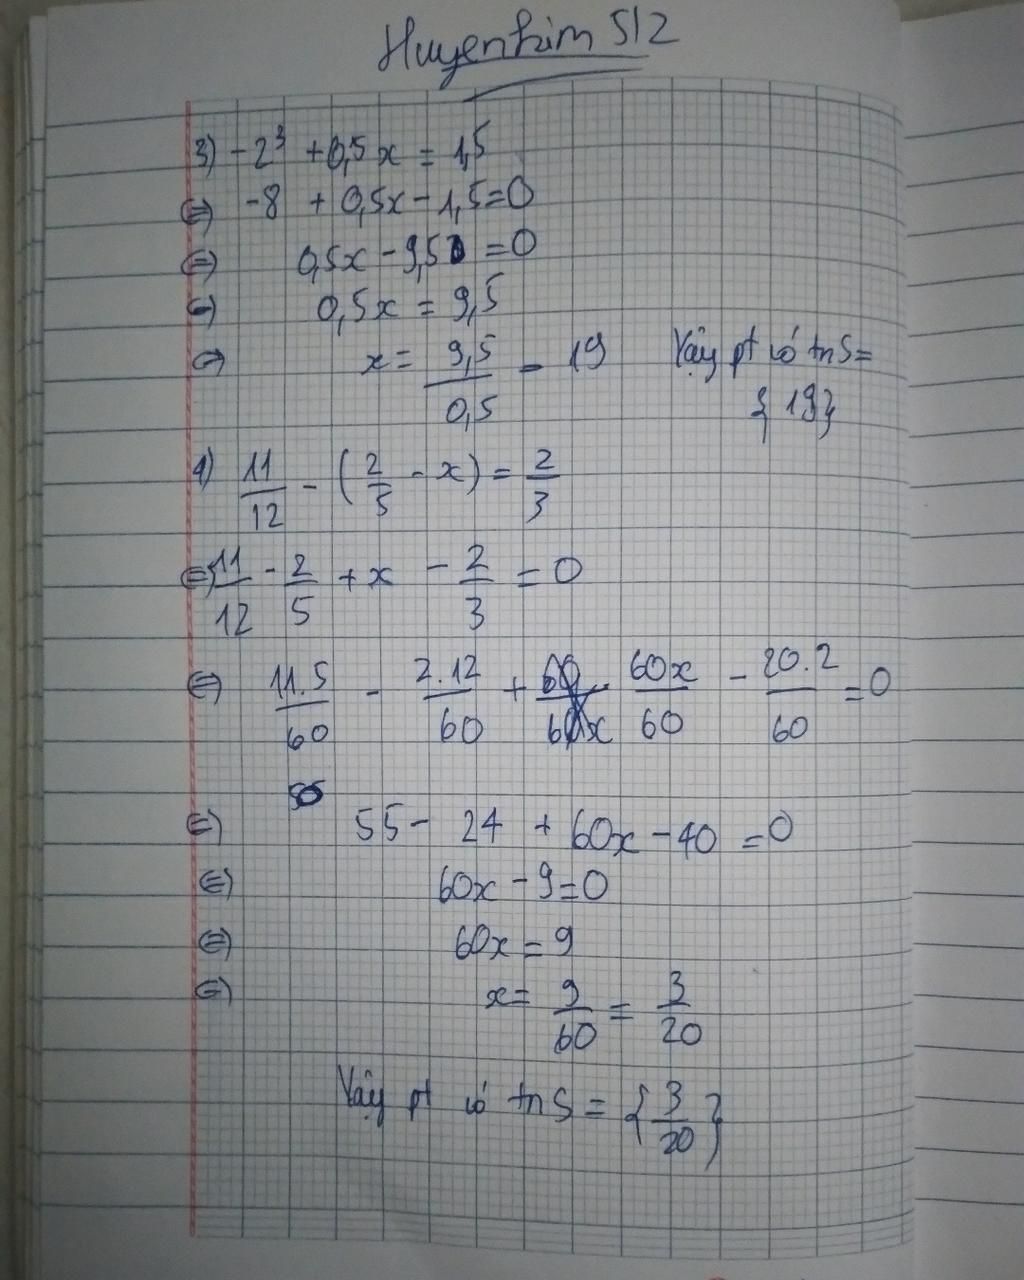 Huyentrim 512
3) -2³ + 0,5x = 1,5
⇔ -8 + 0,5x - 1,5 = 0
⇔ 0,5x - 9,5 = 0
⇔ 0,5x = 9,5
⇔ x = 9,5/0,5 = 19 Vậy pt có tn S =
{19}
4) 11/12 - (2/5 - x) = 2/3
⇔ 11/12 - 2/5 + x - 2/3 = 0
⇔ 11.5/60 - 2.12/60 + 60x/60 - 20.2/60 = 0
⇔ 55 - 24 + 60x - 40 = 0
⇔ 60x - 9 = 0
⇔ 60x = 9
⇔ x = 9/60 = 3/20
Vậy pt có tn S = {3/20}